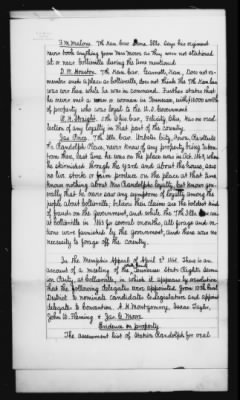 F. M. Malone. 7th Kan. Cav. Ills. Says his regiment
never took anything from Mrs Moore as they were not stationed
at or near Bolivarville during the time mentioned.
D. W. Houston. 7th Kan. Cav. Garnett, Kan., Does not re-
member such a place as Bolivarville, does not think the 7th Kan Cav
was ever there while he was in command. Further states that
he never met a man or woman in Tennessee, with $10000 worth
of property who was loyal to the U.S. Government
W. H. Straight. 4th Ohio Cav., Felicity Ohio, Has no recol-
lection of any loyalty in that part of the country.
Jas. Price. 7th Ills Cav.
Randolph Place, never knew of any property being taken
from there, last time he was on the place was in Oct. 1863, when
he skirmished through the yard and about the house, saw
no live stock or farm produce on the place at that time.
Knows nothing about Mrs Randolph's loyalty, but knows gen-
erally that he never saw any symptoms of loyalty among the
people about Bolivarville, believes these claims are the boldest kind
of frauds on the government, and while the 7th Ills Cav was
at Bolivarville in 1863 for several months, all forage and ra-
tions were furnished by the government, and there was no
necessity to forage off the country.
In the Memphis Appeal of April 2d 1861, There is an
account of a meeting of the Tennessee State Rights Associa-
tion at Bolivarville, in which it appears by resolution
that the following delegates were appointed from 10th Civil
District to nominate candidates to Legislature and appoint
delegates to convention. A. H. Montgomery, Isaac Taylor,
John W. Fleming & Jas. C. Moore.
Evidence on property
The assessment list of Station Randolph for real